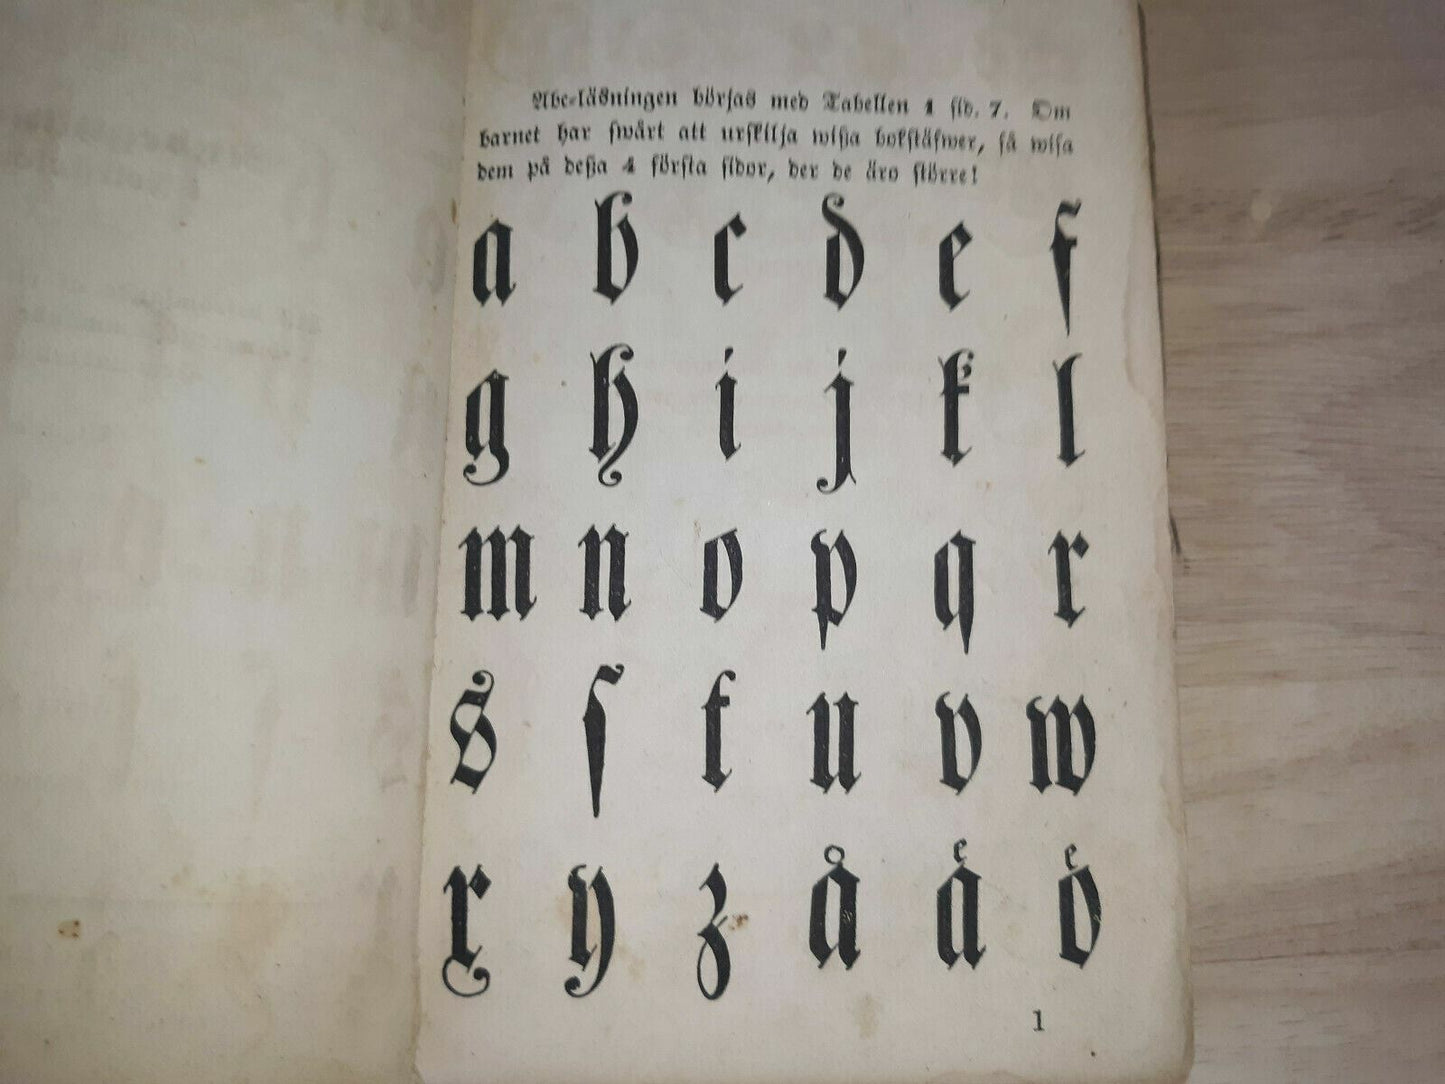 Abc-läsningen börjas med Tabellen 1 ſid. 7. Om
barnet har ſwårt att urſkilja wißa bokſtäfwer, ſå wiſa
dem på deßa 4 förſta ſidor, der de äro ſtörre!
a b c d e f
g h i j k l
m n o p q r
s ſ t u v w
x y z å aͤ oͤ
1